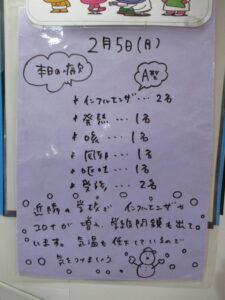 2月5日(月)
本日の病欠
A型
インフルエンザ・・・2名
発熱・・・1名
咳・・・1名
風邪・・・1名
嘔吐・・・1名
発疹・・・2名
近隣の学校で インフルエンザや
コロナが 増え、学級閉鎖も出て
います。気温も 低下しているので
気をつけましょう